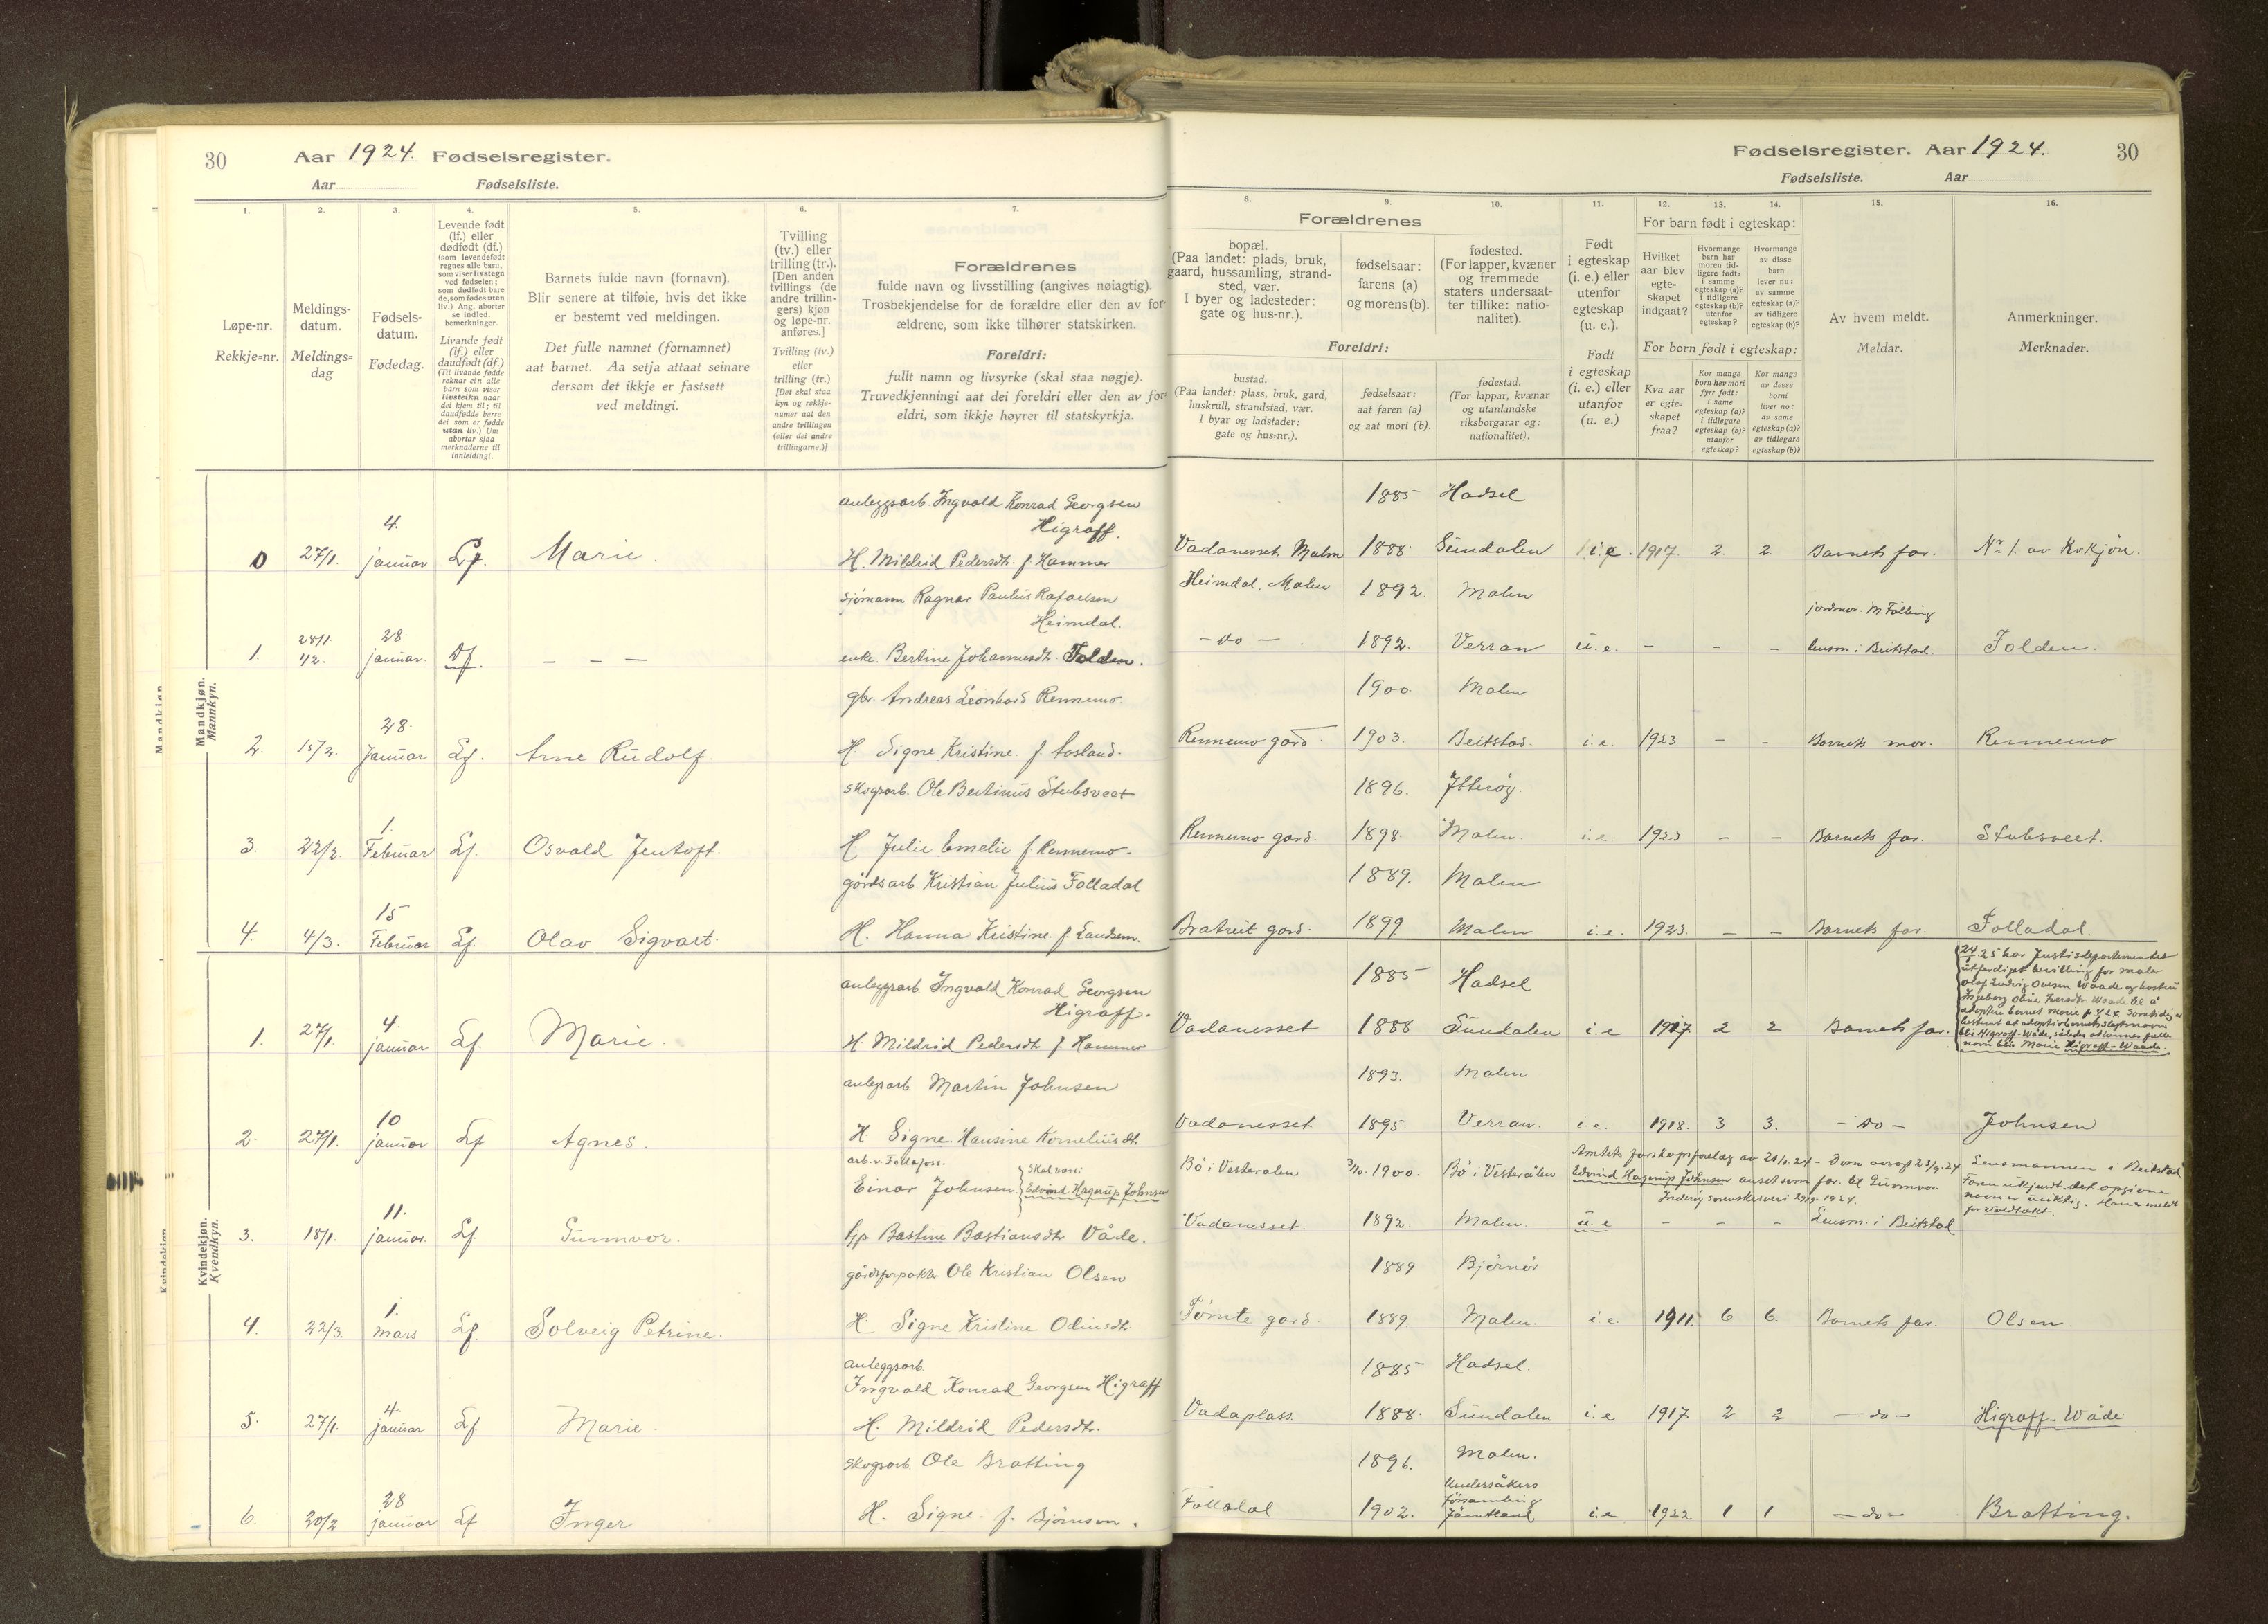 30 Aar 1924. Fødselsregister.
Aar Fødselsliste.
Fødselsregister. Aar 1924. 30
Fødselsliste. Aar
1. 2. 3. 4. 5. 6. 7. 8. 9. 10. 11. 12. 13. 14. 15. 16.
Løpe-nr.
Rekkje-nr.
Meldings-
datum.
Meldings-
dag
Fødsels-
datum.
Fødedag.
Levende født
(lf.) eller
dødfødt (df.)
(som levendefødt
regnes alle barn,
som viser livstegn
ved fødselen;
som dødfødt bare
de, som fødes uten
liv.) Ang. aborter
se indled.
bemerkninger.
Livande født
(lf.) eller
daudfødt (df.)
(Til livande fødde
reknar ein alle
barn som viser
livsteikn naar
dei kjem til; til
daudfødde berre
dei som er fødde
utan liv.) Um
abortar sjaa
merknaderne til
innleidingi.
Barnets fulde navn (fornavn).
Blir senere at tilføie, hvis det ikke
er bestemt ved meldingen.
Det fulle namnet (fornamnet)
aat barnet. Aa setja attaat seinare
dersom det ikkje er fastsett
ved meldingi.
Tvilling
(tv.) eller
trilling (tr.).
[Den anden
tvillings (de
andre trillin-
gers) kjøn
og løpe-nr.
anføres.]
Tvilling (tv.)
eller
trilling (tr.)
[Det skal staa
kyn og rekkje-
numer aat den
andre tvillingen
(eller dei andre
trillingarne.)]
Forældrenes
fulde navn og livsstilling (angives nøiagtig).
Trosbekjendelse for de forældre eller den av for-
ældrene, som ikke tilhører statskirken.
Foreldri:
fullt namn og livsyrke (skal staa nøgje).
Truvedkjenningi aat dei foreldri eller den av for-
eldri, som ikkje høyrer til statskyrkja.
Forældrenes
bopæl.
(Paa landet: plads, bruk,
gaard, hussamling, strand-
sted, vær.
I byer og ladesteder:
gate og hus-nr.).
fødselsaar:
farens (a)
og morens (b).
fødested.
(For lapper, kvæner
og fremmede
staters undersaat-
ter tillike: natio-
nalitet).
Foreldri:
bustad.
(Paa landet: plass, bruk, gard,
huskrull, strandstad, vær.
I byar og ladstader:
gate og hus-nr.).
fødselsaar:
aat faren (a)
og aat mori (b).
fødestad.
(For lappar, kvænar
og utanlandske
riksborgarar og:
nationalitet).
Født
i egteskap
(i. e.) eller
utenfor
egteskap
(u. e.).
Født
i egteskap
(i. e.) eller
utanfor
(u. e.)
For barn født i egteskap:
Hvilket
aar blev
egte-
skapet
indgaat?
Hvormange
barn har
moren tid-
ligere født:
i samme
egteskap (a)?
i tidligere
egteskap (b)?
utenfor
egteskap?
Hvormange
av disse
barn
lever nu:
av samme
egteskap (a)?
av tidligere
egteskap (b)?
For born født i egteskap:
Kva aar
er egte-
skapet
fraa?
Kor mange
born hev mori
fyrr født:
i same
egteskap (a)?
i tidlegare
egteskap (b)?
utanfor
egteskap?
Kor mange
av desse
borni
liver no:
av same
egteskap (a)?
av tidlegare
egteskap (b)?
Av hvem meldt.
Meldar.
Anmerkninger.
Merknader.
Mandkjøn.
Mannkyn.
anleggsarb. Ingvald Konrad Georgsen 1885 Hadsel
Higraff.
0 27/1. 4. januar Lf. Marie. H. Mildrid Pedersdtr. f. Hammer Vadanesset, Malm 1888. Sundalen i. e. 1917. 2. 2 Barnets far. Nr. 1. av Kvkjön.
sjømann Ragnar Paulus Rafaelsen Heimdal, Malm 1892. Malm
Heimdal. jordmor. M. Følling
1. 28/1. 1/2. 28. januar. Df. — — — enke. Bertine Johannesdtr. Folden. — do — 1892. Verran u. e. — — — lensm. i Beitstad. Folden.
gbr. Andreas Leonhard Rennemo. 1900 Malm
2. 15/2. 28. Januar Lf. Arne Rudolf. H. Signe Kristine. f. Aosland. Rennemo gård. 1903. Beitstad. i. e. 1923 — — Barnets mor. Rennemo
skogsarb. Ole Bertinus Stubsveet 1896. Ytterøy.
3. 22/2. 1. Februar Lf. Osvald Jentoft. H. Julie Emelie f. Rennemo. Rennemo gård. 1898. Malm. i. e. 1923 — — Barnets far. Stubsveet.
gårdsarb. Kristian Julius Folladal 1889. Malm
4. 4/3. 15 Februar Lf. Olav Sigvart. H. Hanna Kristine f. Landsem. Bratreit gård. 1899 Malm i. e. 1923. — — Barnets far. Folladal.
Kvindekjøn.
Kvendkyn.
anleggsarb Ingvald Konrad Georgsen 1885 Hadsel
Higraff.
1. 27/1. 4. januar Lf. Marie. H. Mildrid Pedersdtr f. Hammer Vadanesset 1888 Sundalen i. e 1917 2 2 Barnets far.
24.25 har Justisdepartementet
utferdiget bevilling for maler
Olaf Ludvig Ovesen Waade og hustru
Ingeborg Oline Iversdtr. Waade til å
adoptere barnet Marie f. 4/1 24. Samtidig er
bestemt at adoptivbarnets slegtsnavn
blir Higraff-Wåde, således at hennes fulle
navn blir Marie Higraff-Waade.
anlegsarb Martin Johnsen 1893. Malm
2. 27/1. 10 januar Lf Agnes. H. Signe Hansine Korneliusdtr. Vadanesset 1895. Verran. i. e. 1918. 3 3. — do — Johnsen
arb. v. Follafoss.
Einar Johnsen } Skal være: Edvind Hagerup Johnsen Bö i Vesterålen 3/10. 1900. Bö i Vesterålen
Amtets farskapsforelæg av 21/2. 24 – Dom avsagt 23/9. 24
Edvind Hagerup Johnsen anset som far til Gunnvor.
Inderöy sorenskriveri 29/9. 1924.
Lensmannen i Beitstad
Faren ukjendt. det opgivne
navn er uriktig. Han er meldt
for voldtekt.
3. 18/1. 11. januar Lf Gunnvor. Bastine Bastiansdtr Våde. Vadanesset. 1892. Malm. u. e — — — Lensm. i Beitstad
gårdsforpakter Ole Kristian Olsen 1889 Bjørnör
4. 22/3. 1. mars Lf. Solveig Petrine. H. Signe Kristine Odinsdtr Tømte gård. 1889. Malm. i. e. 1911. 6 6. Barnets far. Olsen.
anleggsarb
Ingvald Konrad Georgsen Higraff 1885 Hadsel.
5. 27/1. 4 januar Lf Marie. H. Mildrid Pedersdtr. Vadaplass. 1888. Sundalen i. e 1917. 2 2 — do — Higraff-Wåde
skogsarb Ole Bratting 1896. Malm.
6. 20/2 28 januar Lf Inger H. Signe. f. Björnson. Folladal 1902. Undersåkers Församling Jämtland i. e 1922 1 1 — do — Bratting.